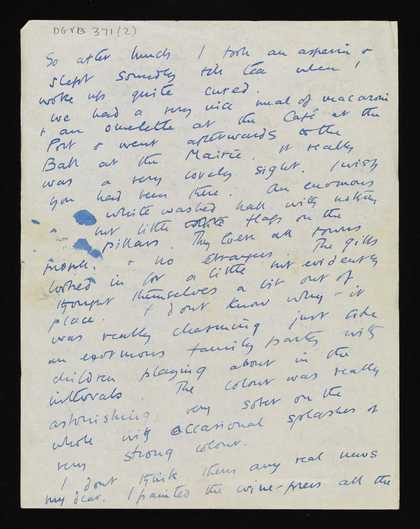 DG VB 371(2)
So after lunch I took an asperin &
slept soundly till tea when I
woke up quite cured.
We had a very nice meal of macaroni
& an omelette at the Café at the
Port & went afterwards to the
Ball at the Mairie. It really
was a very lovely sight. I wish
you had been there. An enormous
white washed hall with nothing
but little white flags on the
pillars. They were all towns
people. & no strangers. The
looked in for a little but evidently
thought themselves a bit out of
place. I dont know why - it
was really charming just like
an enormous family party with
children playing about in the
intervals. The colour was really
astonishing very sober on the
whole with occasional splashes of
very strong colour.
I dont think theres any real news
my dear. I painted the wine-press all the